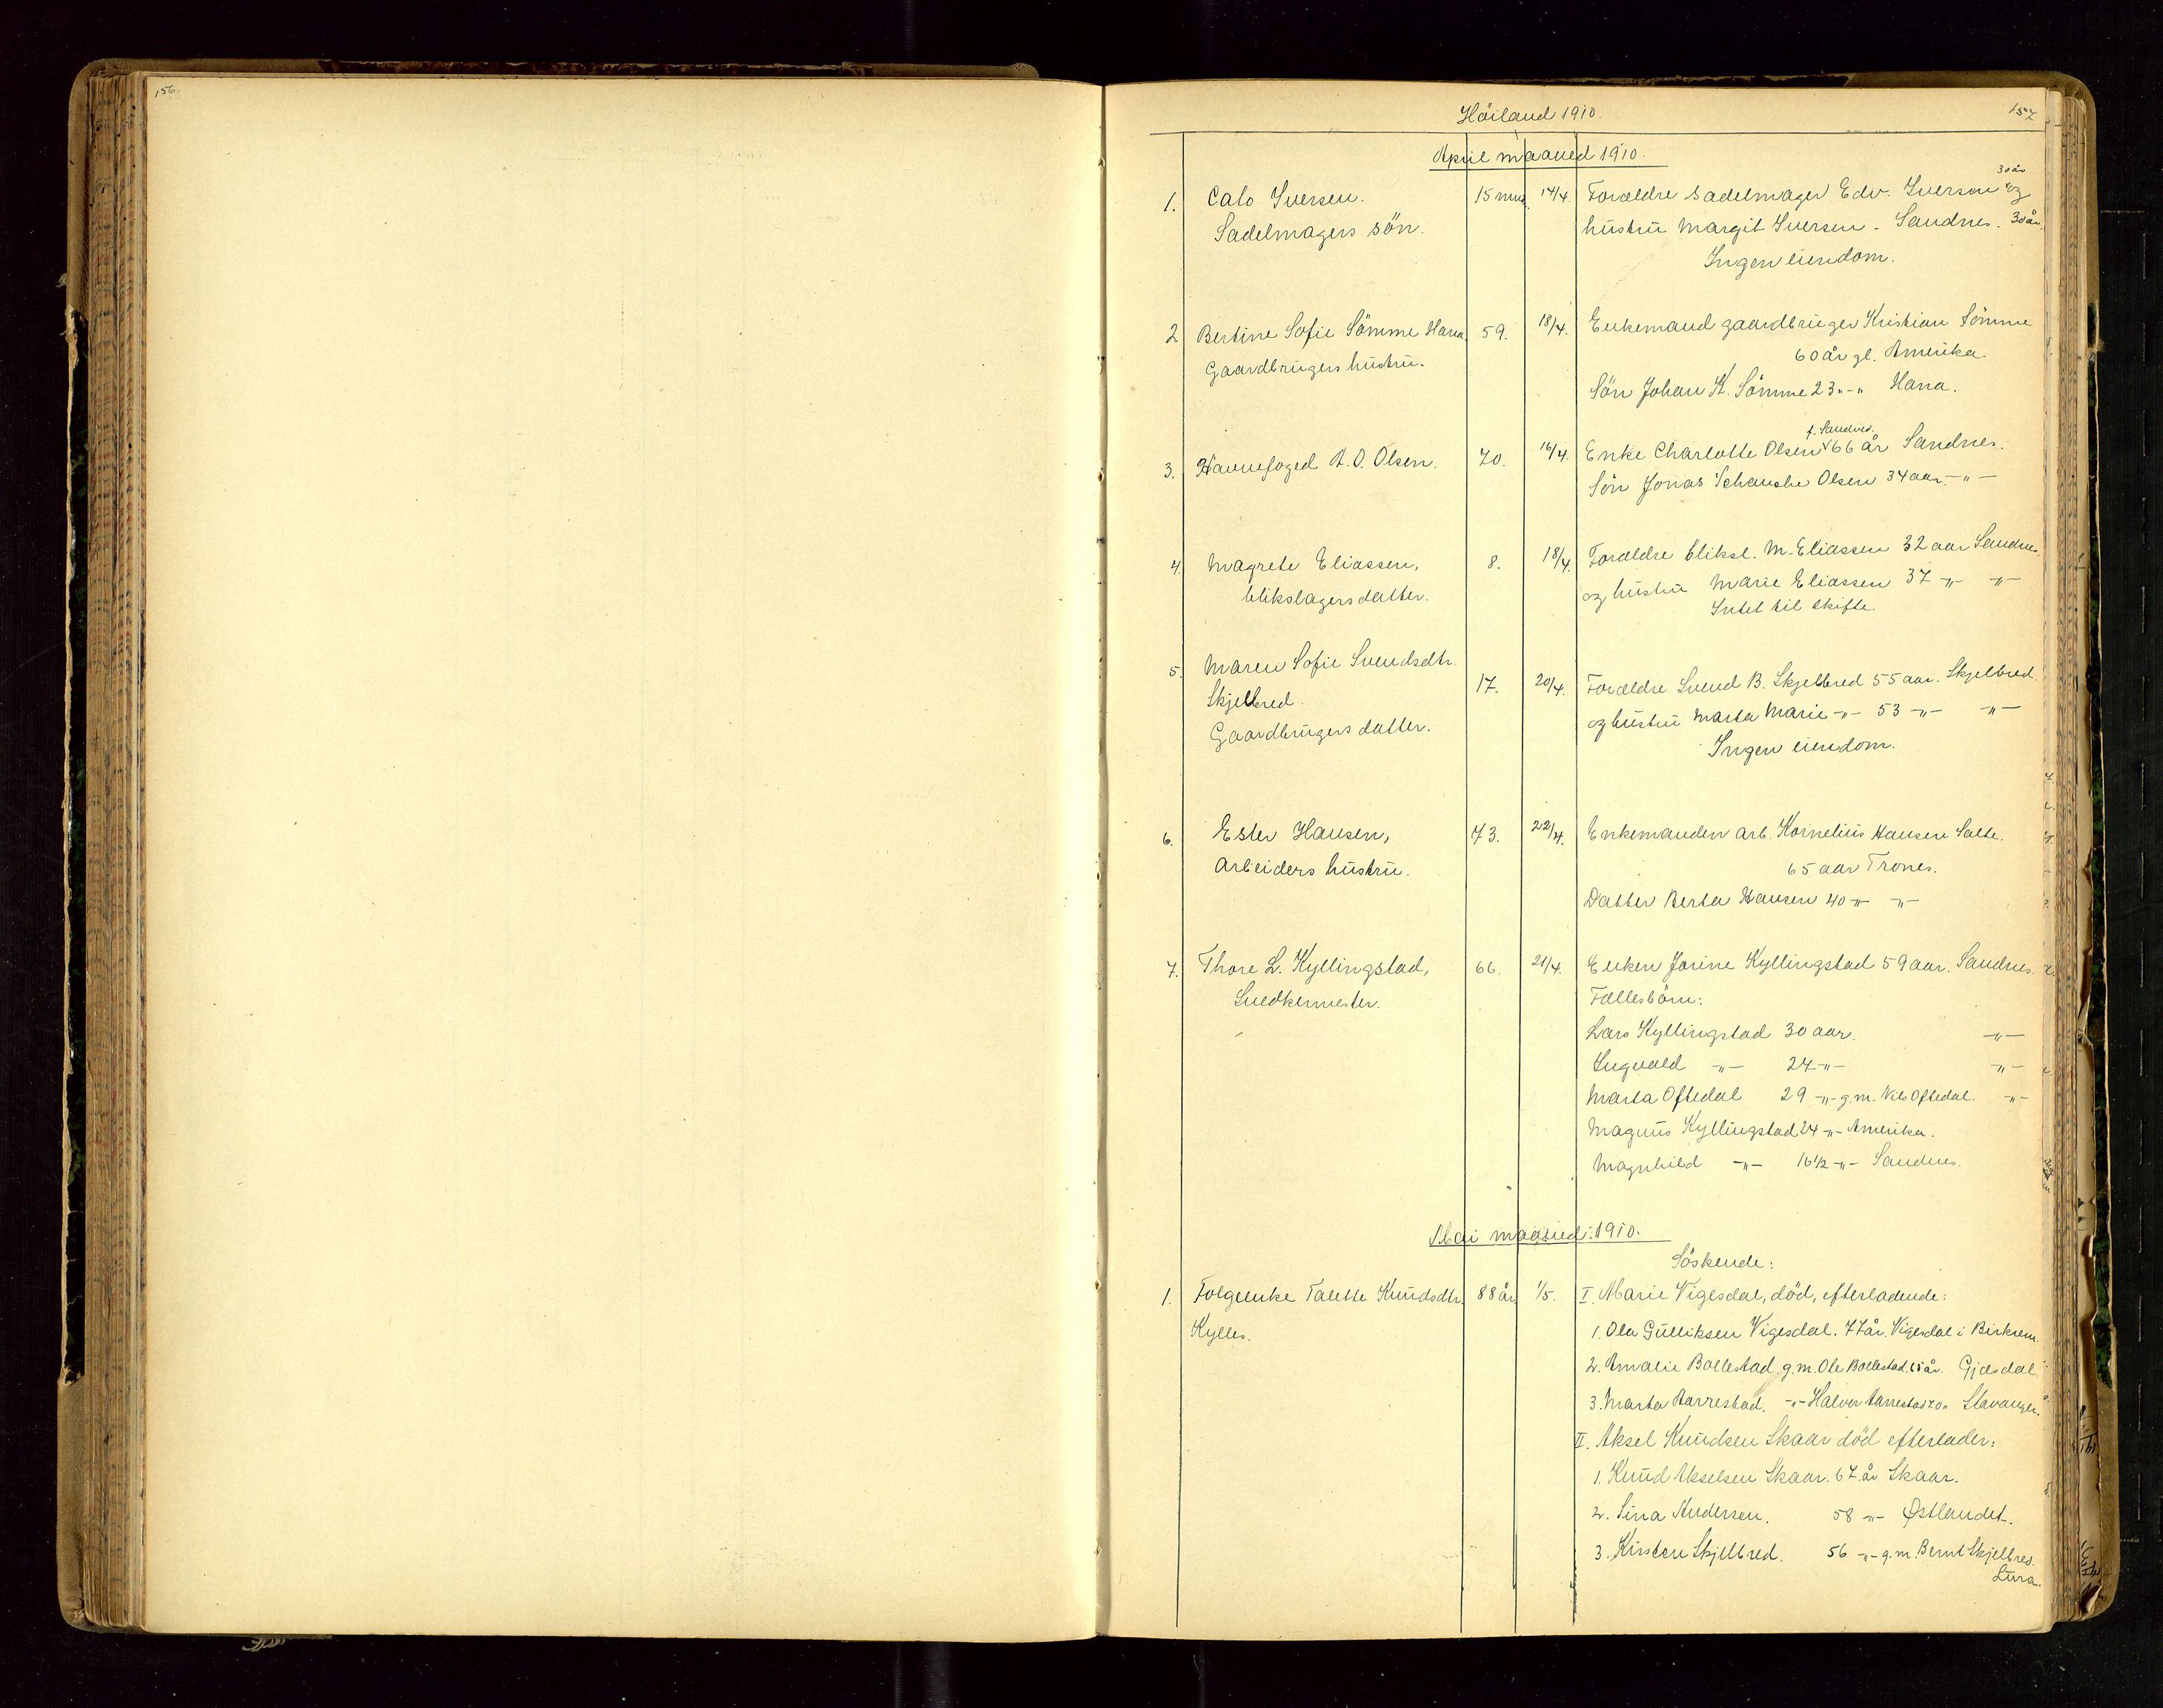 156.
Höiland 1910.
157
April maaned 1910.
1. Calo Iversen. 15 mnd. 14/4. Forældre sadelmager Edv. Iversen 30 år og
Sadelmagers sön. hustru Margit Iversen. Sandnes. 30 år.
Ingen eiendom.
2 Bertine Sofie Sömme Hana. 59. 18/4. Enkemand gaardbruger Kristian Sömme
Gaardbrugers hustru. 60 år gl. Amerika.
Sön Johan K. Sömme 23 "-" Hana.
3. Havnefoged A. O. Olsen. 70. 16/4. Enke Charlotte Olsen f. Sandved. 66 år Sandnes.
Sön Jonas Schanche Olsen 34 aar. -"-
4. Magrete Eliassen, 8. 18/4. Forældre bliksl. M. Eliassen 32 aar Sandnes.
blikslagers datter. og hustru Marie Eliassen 37 -"- -"-
Intet til skifte.
5. Maren Sofie Svendsdtr.
Skjelbred. 17. 20/4. Forældre Svend B. Skjelbred 55 aar. Skjelbred.
Gaardbrugers datter. og hustru Marta Marie -"- 53 -"- -"-
Ingen eiendom.
6. Ester Hansen, 73. 22/4. Enkemanden arb. Kornelius Hansen Salte.
Arbeiders hustru. 65 aar Trones.
Datter Berta Hansen 40 -"- -"-
7. Thore L. Kyllingstad, 66. 21/4. Enken Jorine Kyllingstad 59 aar. Sandnes.
Snedkermester. Fællesbörn:
Lars Kyllingstad 30 aar. -"-
Ingvald -"- 27 -"- -"-
Marta Oftedal 29 -"- g.m. Nils Oftedal. -"-
Magnus Kyllingstad 24 -"- Amerika.
Magnhild -"- 16 1/2 -"- Sandnes.
Mai maaned: 1910.
Söskende:
1. Folgeenke Talette Knudsdtr. 88 år 1/5. I. Marie Vigesdal, död, efterladende:
Kylles. 1. Ola Gulliksen Vigesdal. 77 år. Vigesdal i Birkrem.
2. Amalie Bollestad. g.m. Ole Bollestad. 65 år. Gjæsdal.
3. Marta Aarrestad. -"- Halvor Aarrestad 70 " Stavanger.
II. Aksel Knudsen Skaar död efterlader:
1. Knud Akselsen Skaar. 67 år Skaar.
2. Sina Andersen. 58 -"- Østlandet.
3. Kirsten Skjelbred. 56 -"- g.m. Bernt Skjelbred.
Lura.